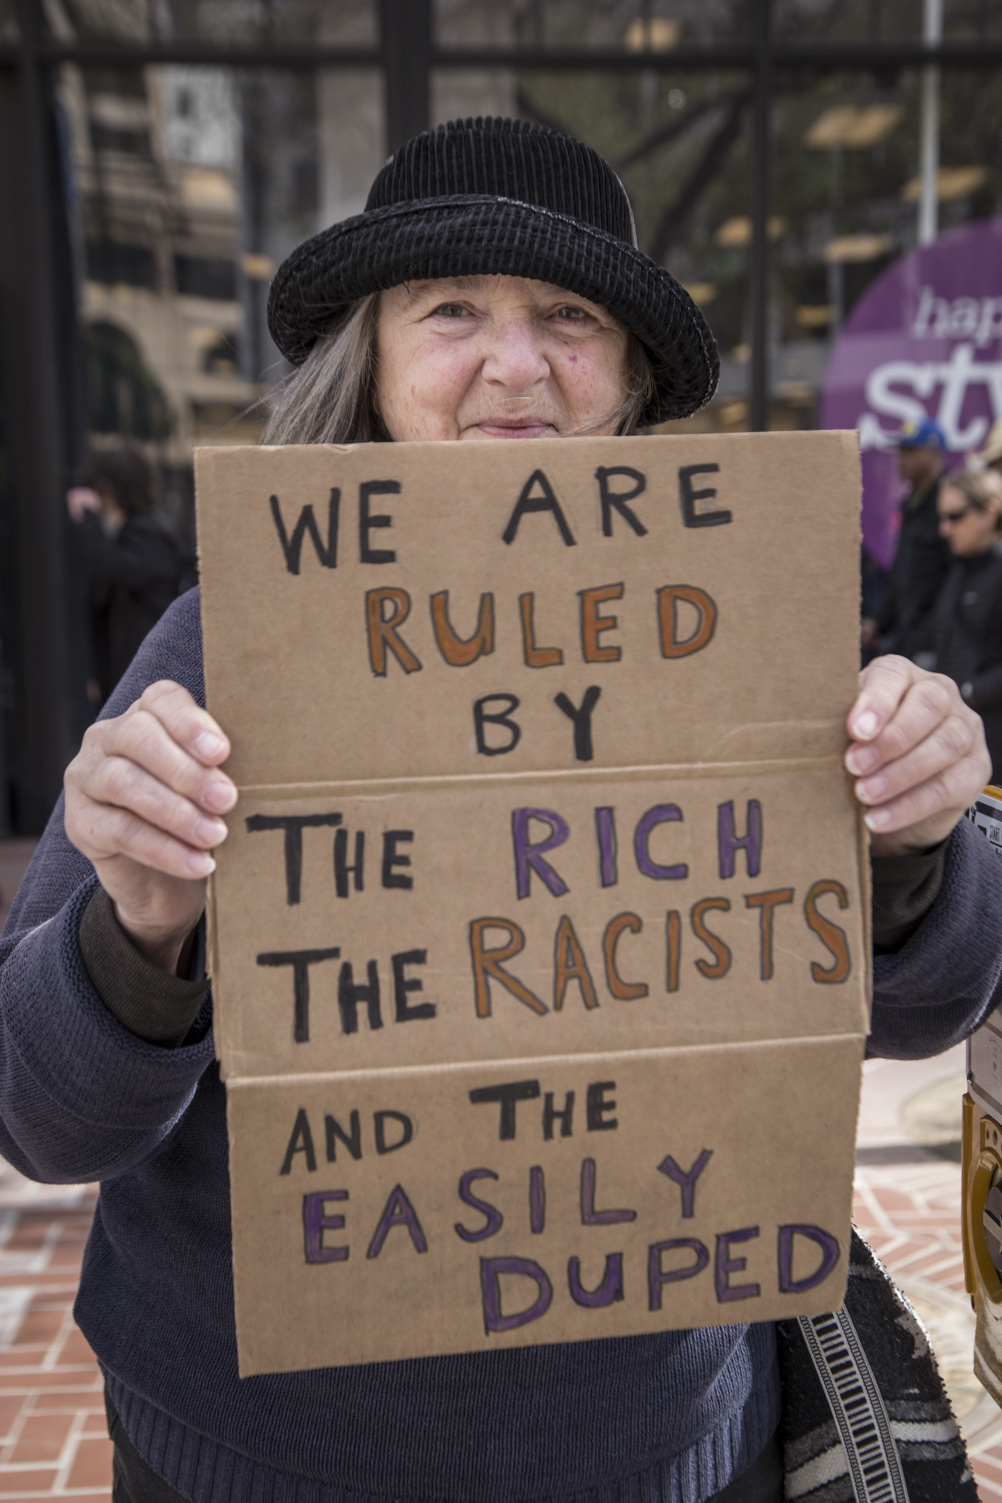 WE ARE
RULED
BY
THE RICH
THE RACISTS
AND THE
EASILY
DUPED
hap
sty